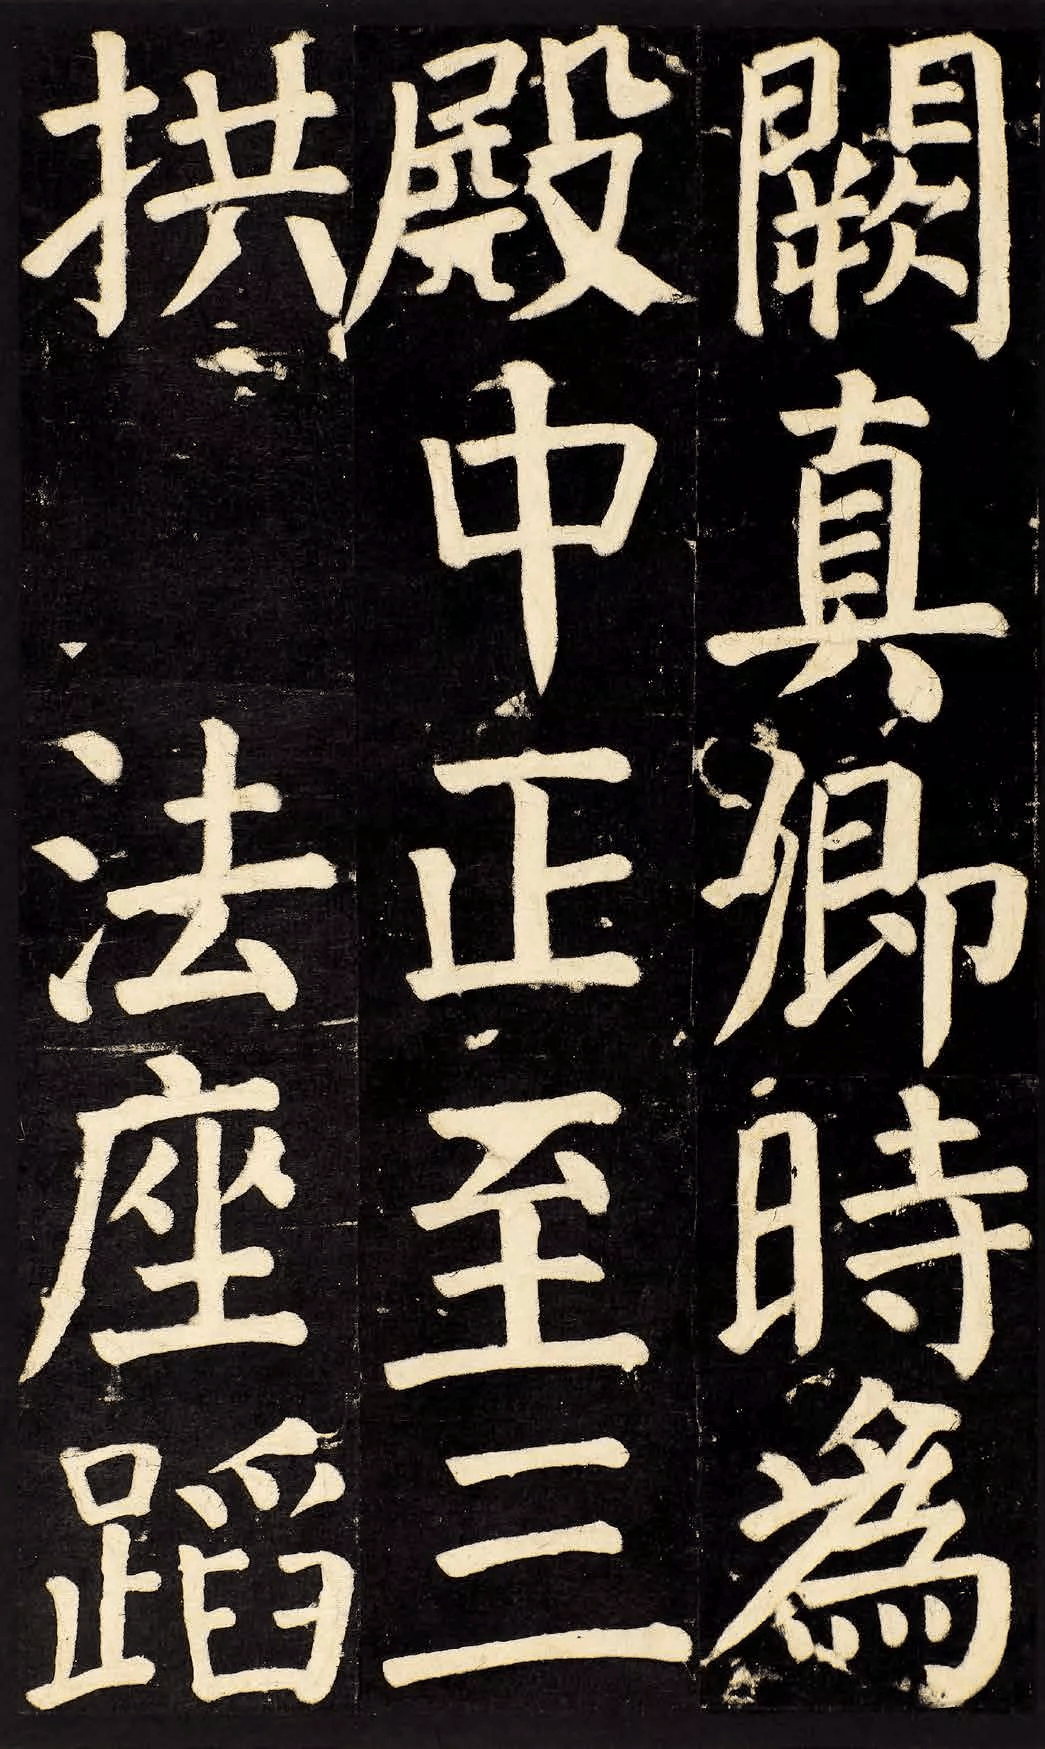 闕真卿時為
殿中正至三
拱法座蹈